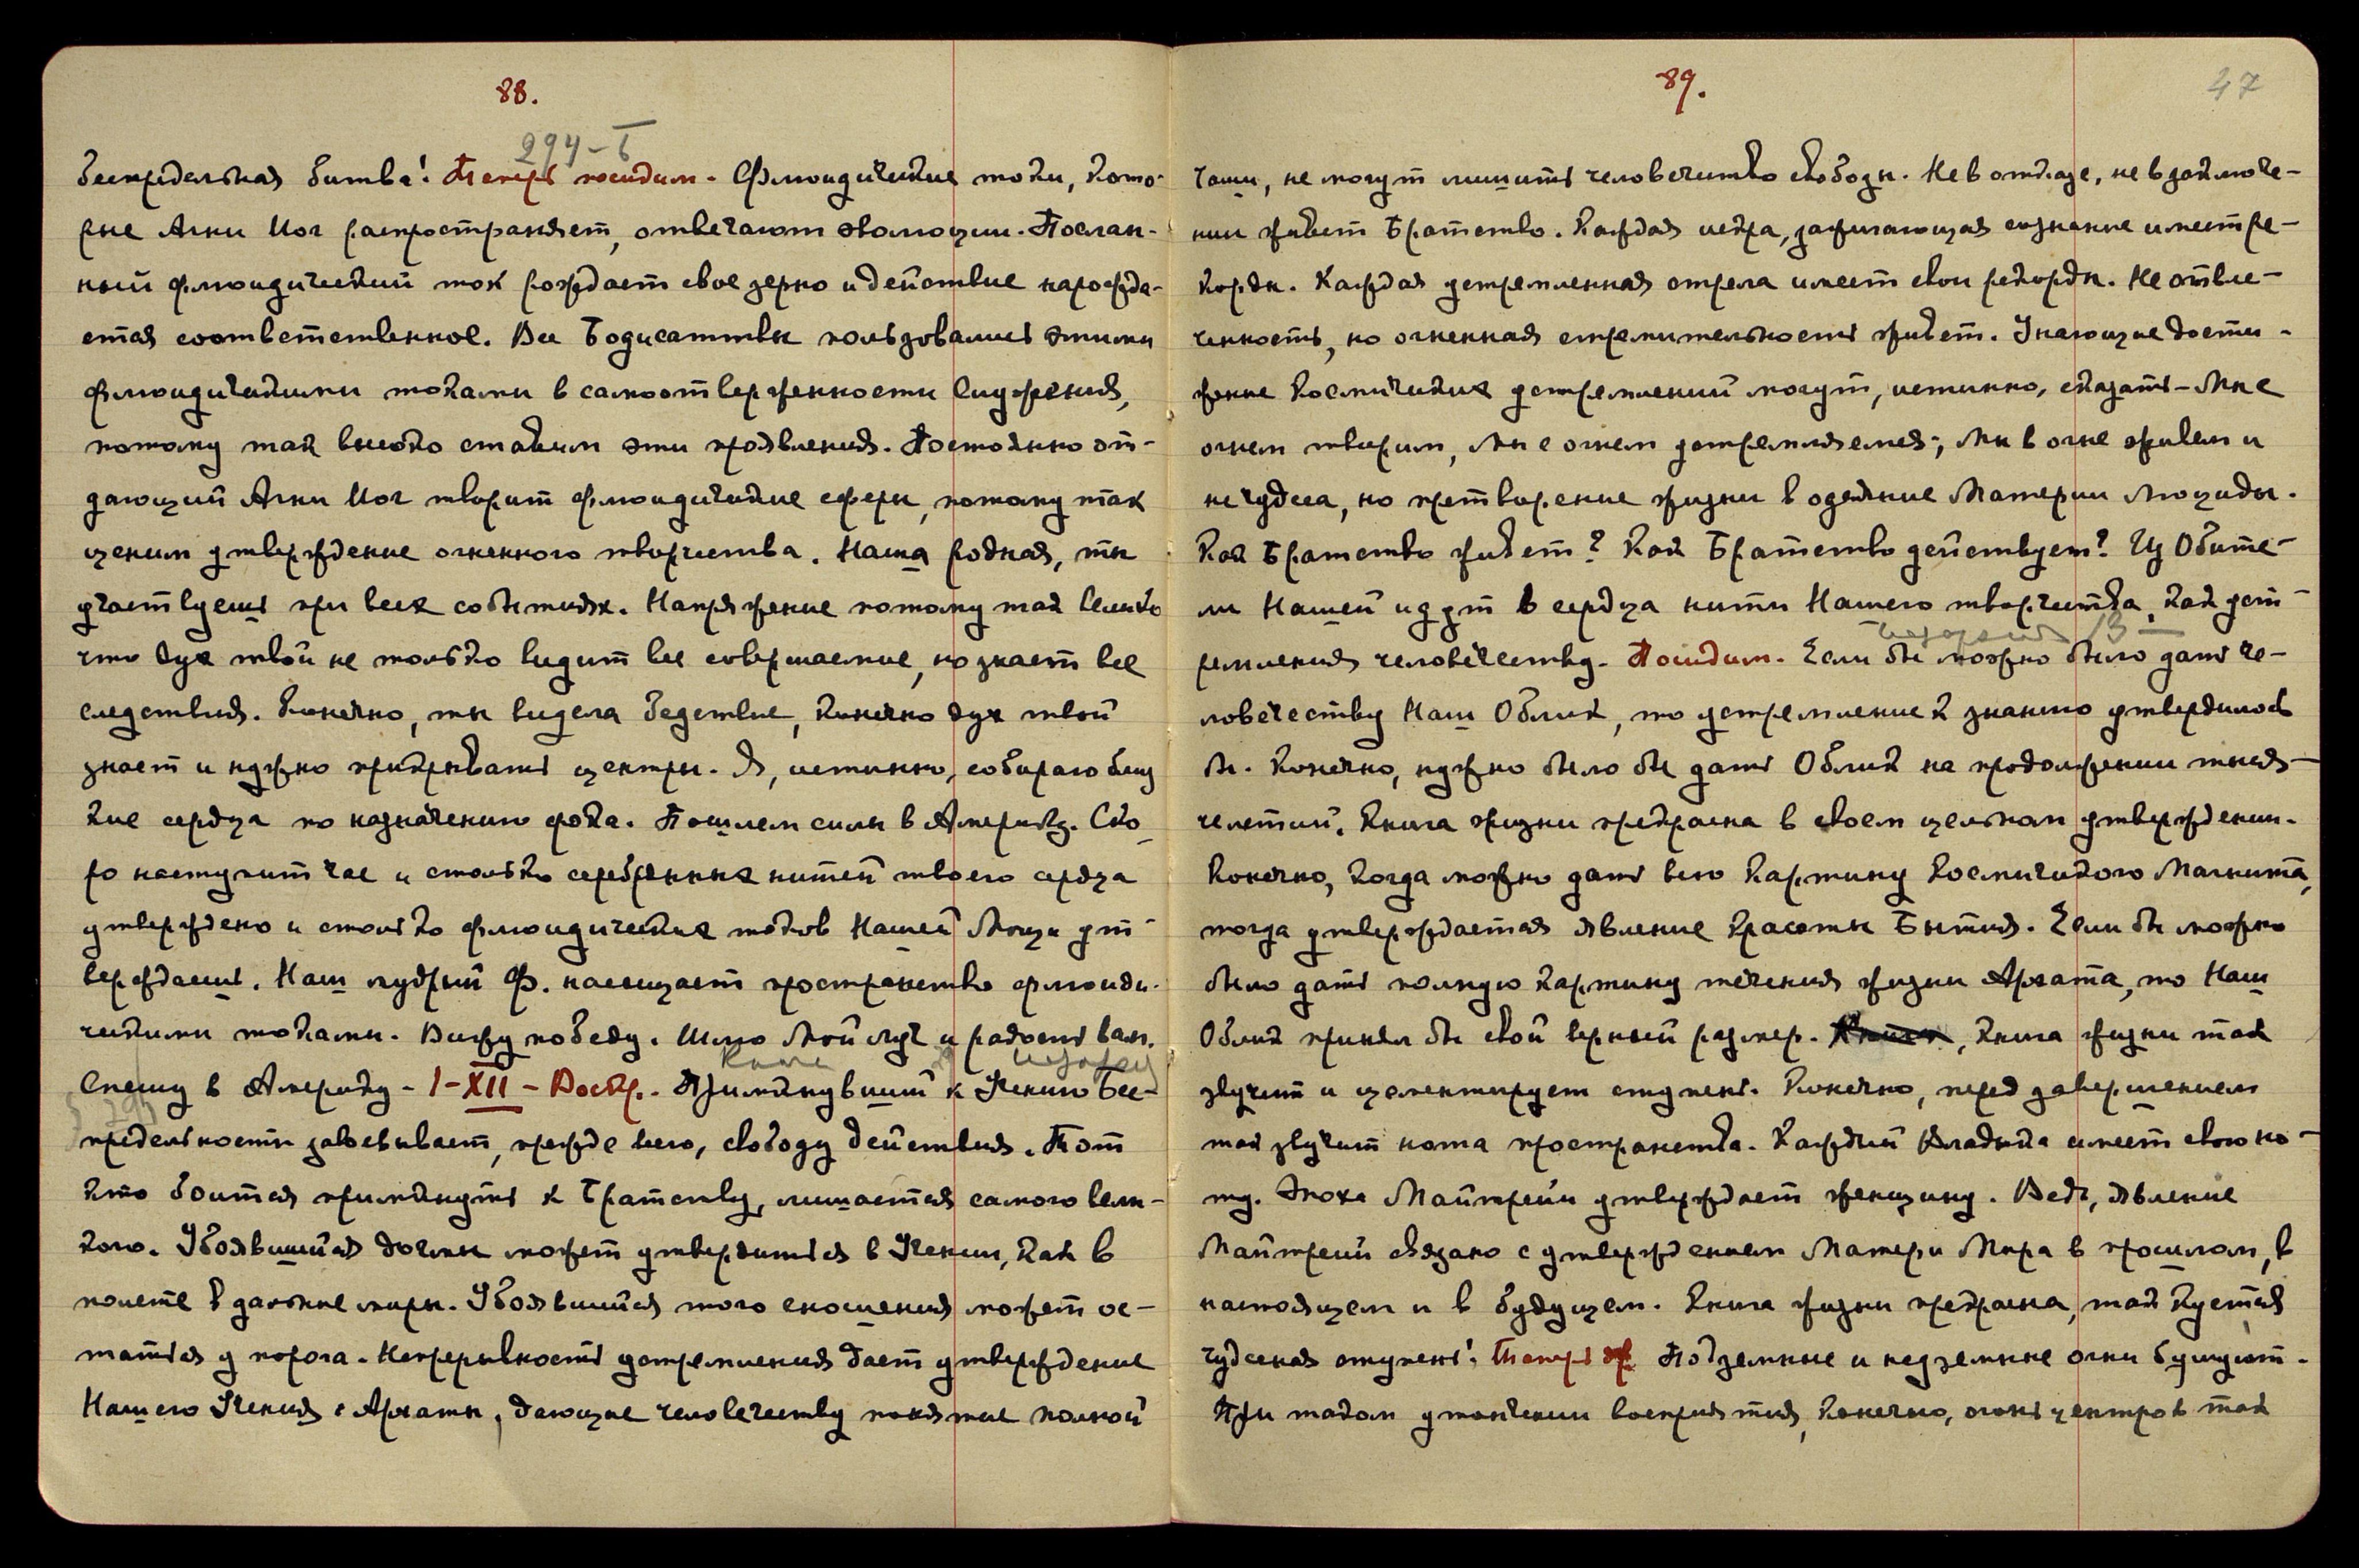 88.
294-Б
беспредельная битва! Теперь посидим. Флюидические токи, кото-
рые Агни Йог распространяет, отвечают эволюции. Послан-
ный флюидический ток рождает свое зерно и действие нарожда-
ется соответственное. Все Бодисаттвы пользовались этими
флюидическими токами в самоотверженности служения,
потому так высоко ставим эти проявления. Постоянно от-
дающий Агни Йог творит флюидические сферы, потому так
ценим утверждение огненного творчества. Наша родная, ты
участвуешь при всех событиях. Напряжение потому так велико
что дух твой не только видит все совершаемые, но знает все
следствия. Конечно, ты видела бедствие, конечно дух твой
знает и нужно прикрывать центры. Я, истинно, собираю близ
кие сердца по назначению рока. Пошлем силы в Америку. Ско-
ро наступит час и столько серебренных нитей твоего сердца
утверждено и столько флюидических токов Нашей Мощи ут-
верждаешь. Наш мудрый Ф. насыщает пространство флюиди-
ческими токами. Вижу победу. Шлю Мой луч и радость вам.
Спешу в Америку - 1-XII - Воскр. Примкнувший к Учению Бес-
предельности завоевывает, прежде всего, свободу действия. Тот
кто боится примкнуть к Братству, лишается самого вели-
кого. Убоявшийся догмы может утвердиться в Учении, как в
полете в дальние миры. Убоявшийся того сношения может ос-
таться у порога. Непрерывность устремления дает утверждение
Нашего Учения. Архаты, дающие человечеству понятие полной
89.
47
чаши, не могут лишить человечество свободы. Не в отказе, не в заключе-
нии живет Братство. Каждая искра, зажигающая сознание имеет ре-
корды. Каждая устремленная стрела имеет свои рекорды. Не отвле-
ченность, но огненная стремительность живет. Знающие дости-
жение космических устремлений могут, истинно, сказать - Мы с
огнем творим, мы с огнем устремляемся; мы в огне живем и
не чудеса, но претворение жизни в одеяние Материи Люциды.
Как Братство живет? Как Братство действует? Из Обите-
ли Нашей идут в сердца нити Нашего творчества, как уст-
ремления человечеству. Посидим. Если бы можно было дать че-
ловечеству Наш Облик, то устремление к знанию утвердилось
бы. Конечно, нужно было бы дать Облик на продолжении тыся-
челетий. Книга жизни прекрасна в своем цельном утверждении.
Конечно, когда можно дать всю картину Космического Магнита,
тогда утверждается явление Красоты Бытия. Если бы можно
было дать полную картину течения жизни Архата, то Наш
Облик принял бы свой верный размер. Книга жизни так
звучит и цементирует ступень. Конечно, перед завершением
так звучит нота пространства. Каждый Владыка имеет свою но-
ту. Эпоха Майтрейи утверждает женщину. Ведь, явление
Майтрейи связано с утверждением Матери Мира в прошлом, в
настоящем и в будущем. Книга жизни прекрасна, так куется
чудесная ступень! Теперь Подземные и надземные огни бушуют.
При таком утончении восприятия, конечно, огонь центров так